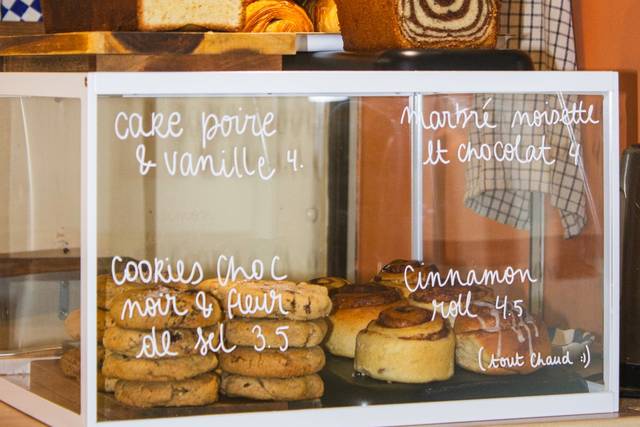 cake poire
& vanille 4.
marbré noisette
et chocolat 4
cookies choc
noir & fleur
de sel 3.5
Cinnamon
roll 4.5
(tout chaud :)